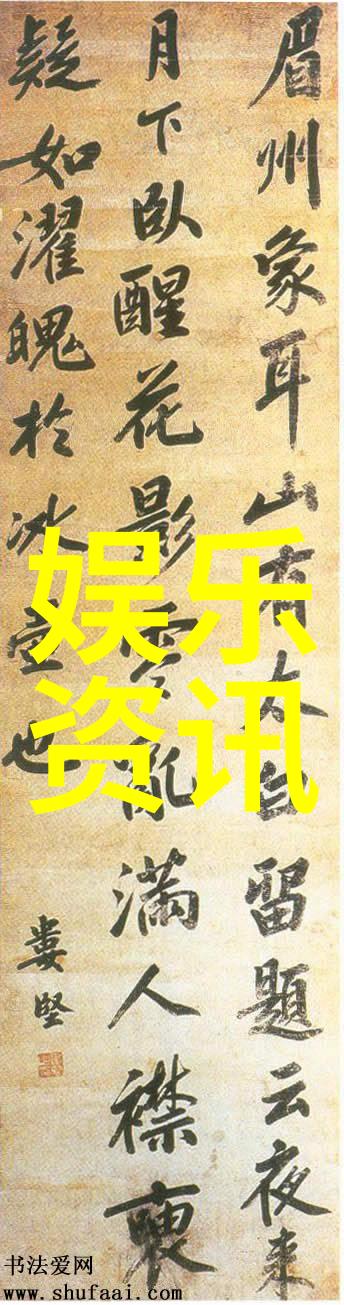 眉州象耳山有太白留題云夜来
月下臥醒花影零亂滿人襟
疑如濯魄於冰壺也
婁堅
娱乐
资讯
书法爱网
www.shufaai.com